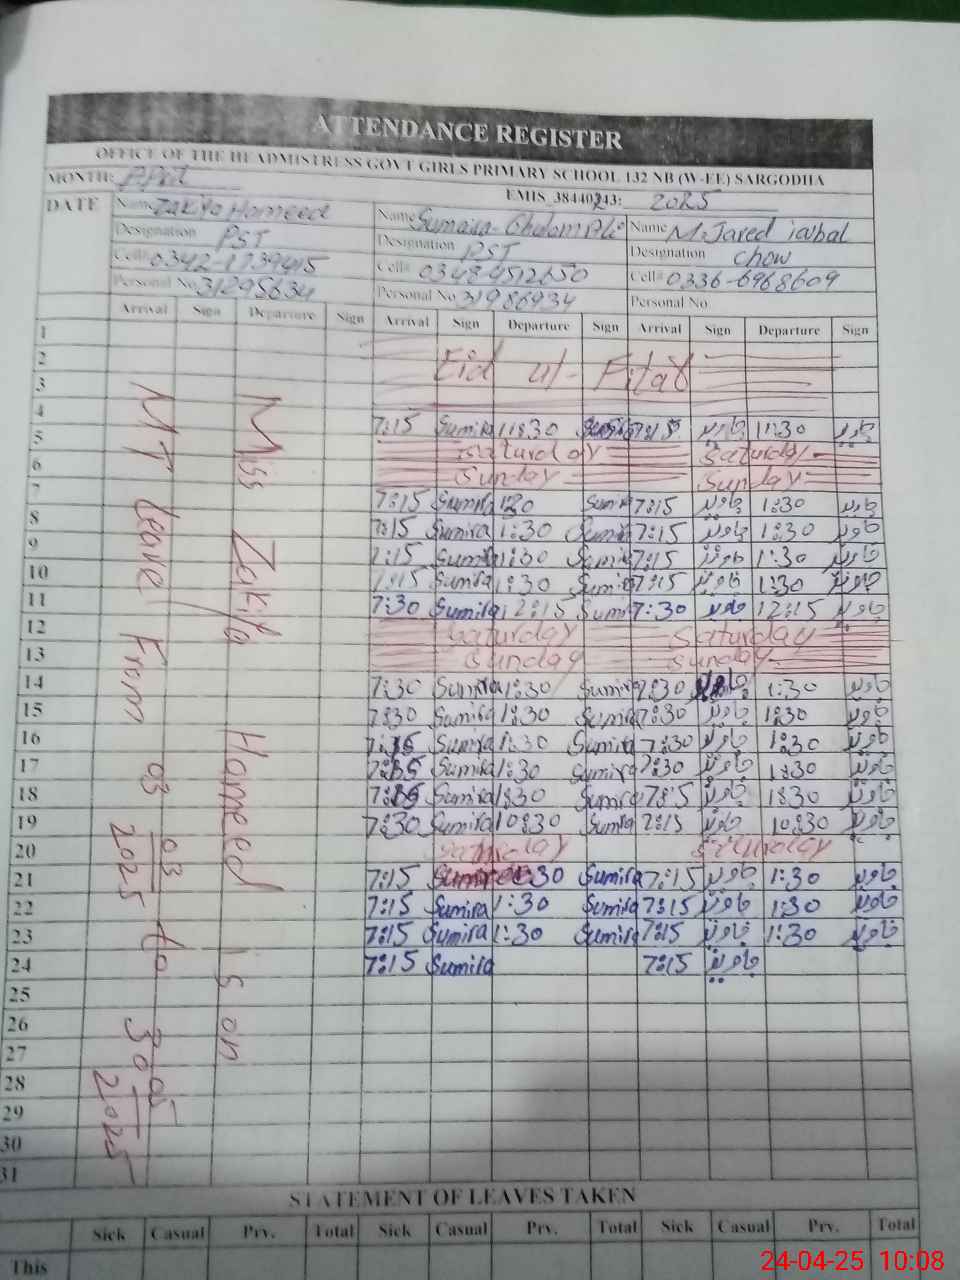 ATTENDANCE REGISTER
OFFICE OF THE HEADMISTRESS GOVT GIRLS PRIMARY SCHOOL 132 NB (W-EE) SARGODHA
MONTH: April EMIS_38440243: 2025
DATE Name Zakiya Hameed Name Sumaira Ghulam Ali Name M.Javed iqbal
Designation PST Designation PST Designation chow
Cell# 0342-1739415 Cell# 0348-4512650 Cell# 0336-6968609
Personal No 31295634 Personal No 31986934 Personal No
Arrival Sign Departure Sign Arrival Sign Departure Sign Arrival Sign Departure Sign
1
2 Eid ul-Fitar
3
4 7:15 Sumira 11:30 Sumira 7:15 جاوید 11:30 جاوید
5 Saturday Saturday
6 Sunday Sunday
7 7:15 Sumira 1:30 Sumira 7:15 جاوید 1:30 جاوید
8 7:15 Sumira 1:30 Sumira 7:15 جاوید 1:30 جاوید
9 7:15 Sumira 1:30 Sumira 7:15 جاوید 1:30 جاوید
10 7:15 Sumira 1:30 Sumira 7:15 جاوید 1:30 جاوید
11 7:30 Sumira 12:15 Sumira 7:30 جاوید 12:15 جاوید
12 Saturday Saturday
13 Sunday Sunday
14 7:30 Sumira 1:30 Sumira 7:30 جاوید 1:30 جاوید
15 7:30 Sumira 1:30 Sumira 7:30 جاوید 1:30 جاوید
16 Sumira 1:30 Sumira 7:30 جاوید 1:30 جاوید
17 Sumira 1:30 Sumira 7:30 جاوید 1:30 جاوید
18 Sumira 1:30 Sumira 7:15 جاوید 1:30 جاوید
19 7:30 Sumira 10:30 Sumira 7:15 جاوید 10:30 جاوید
20
21 7:15 Sumira 1:30 Sumira 7:15 جاوید 1:30 جاوید
22 7:15 Sumira 1:30 Sumira 7:15 جاوید 1:30 جاوید
23 7:15 Sumira 1:30 Sumira 7:15 جاوید 1:30 جاوید
24 7:15 Sumira 7:15 جاوید
25
26
27
28
29
30
31
Miss Zakiya Hameed is on
MT leave From 03/03/2025 to 30/05/2025
STATEMENT OF LEAVES TAKEN
Sick Casual Prv. Total Sick Casual Prv. Total Sick Casual Prv. Total
This
24-04-25 10:08